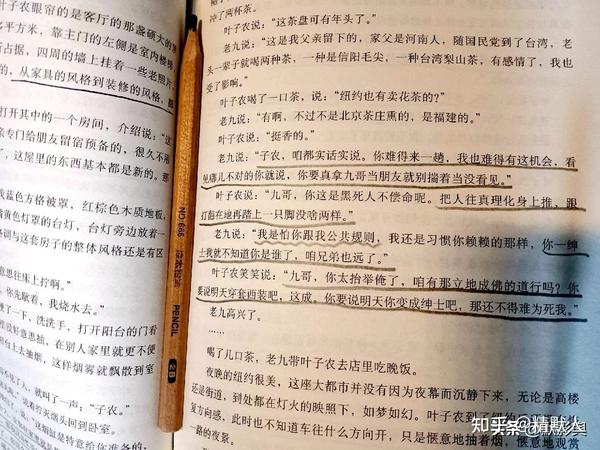 叶子农眼帘的是客厅的那盏硕大的
多平方米，靠主门的左侧是室内楼梯，
占据，四周的墙上挂着一些老照片，
的，从家具的风格到装修的风格，
打开其中的一个房间，介绍说：“这
亲专门给朋友留宿预备的，很久不用
了，这屋里的东西基本都是新的。那
蓝色方格被罩，红棕色木质地板，
黄色灯罩的台灯，台灯旁边放着一
调与这套房子的整体风格还是有区
意思往床上拧啊。”
你先歇着，我烧水去。”
了一下，洗洗手，打开阳台的门看
没好意思抽，在别人家里就更不便
台上去抽烟，这样烟雾就飘散到室
人，就叫了一声：“子农。”
说着拧灭烟头回到卧室。
这烟缸是特意给你准备的
NO.666
PENCIL
2B
冲了两杯茶。
叶子农说：“这茶盘可有年头了。”
老九说：“这是我父亲留下的，家父是河南人，随国民党到了台湾，老
头一辈子就喝两种茶，一种是信阳毛尖，一种台湾梨山茶，有感情了，我也
受了影响。”
叶子农喝了一口茶，说：“纽约也有卖花茶的？”
老九说：“有啊，不过不是北京茶庄熏的，是福建的。”
叶子农说：“挺香的。”
老九说：“子农，咱都实话实说。你难得来一趟，我也难得有这机会，看
见哪儿不对的你就说，你要真拿九哥当朋友就别揣着当没看见。”
叶子农说：“九哥，你这是黑死人不偿命呢。把人往真理化身上推，跟
打翻在地再踏上一只脚没啥两样。”
老九说：“我是怕你跟我公共规则，我还是习惯你赖赖的那样，你一绅
士我就不知道你是谁了，咱兄弟也远了。”
叶子农笑笑说：“九哥，你太抬举俺了，咱有那立地成佛的道行吗？你
要说明天穿套西装吧，这成。你要说明天你变成绅士吧，那还不得难为死我。”
老九高兴了。
……
喝了几口茶，老九带叶子农去店里吃晚饭。
夜晚的纽约很美，这座大都市并没有因为夜幕而沉静下来，无论是高楼
还是街道，到处都在灯火的映照下，如梦如幻。叶子农到了纽约
方向感，此时也不知道车往什么方向开，只是惬意地抽着烟，惬意地观赏
一路的夜景。
知乎 @精默奥